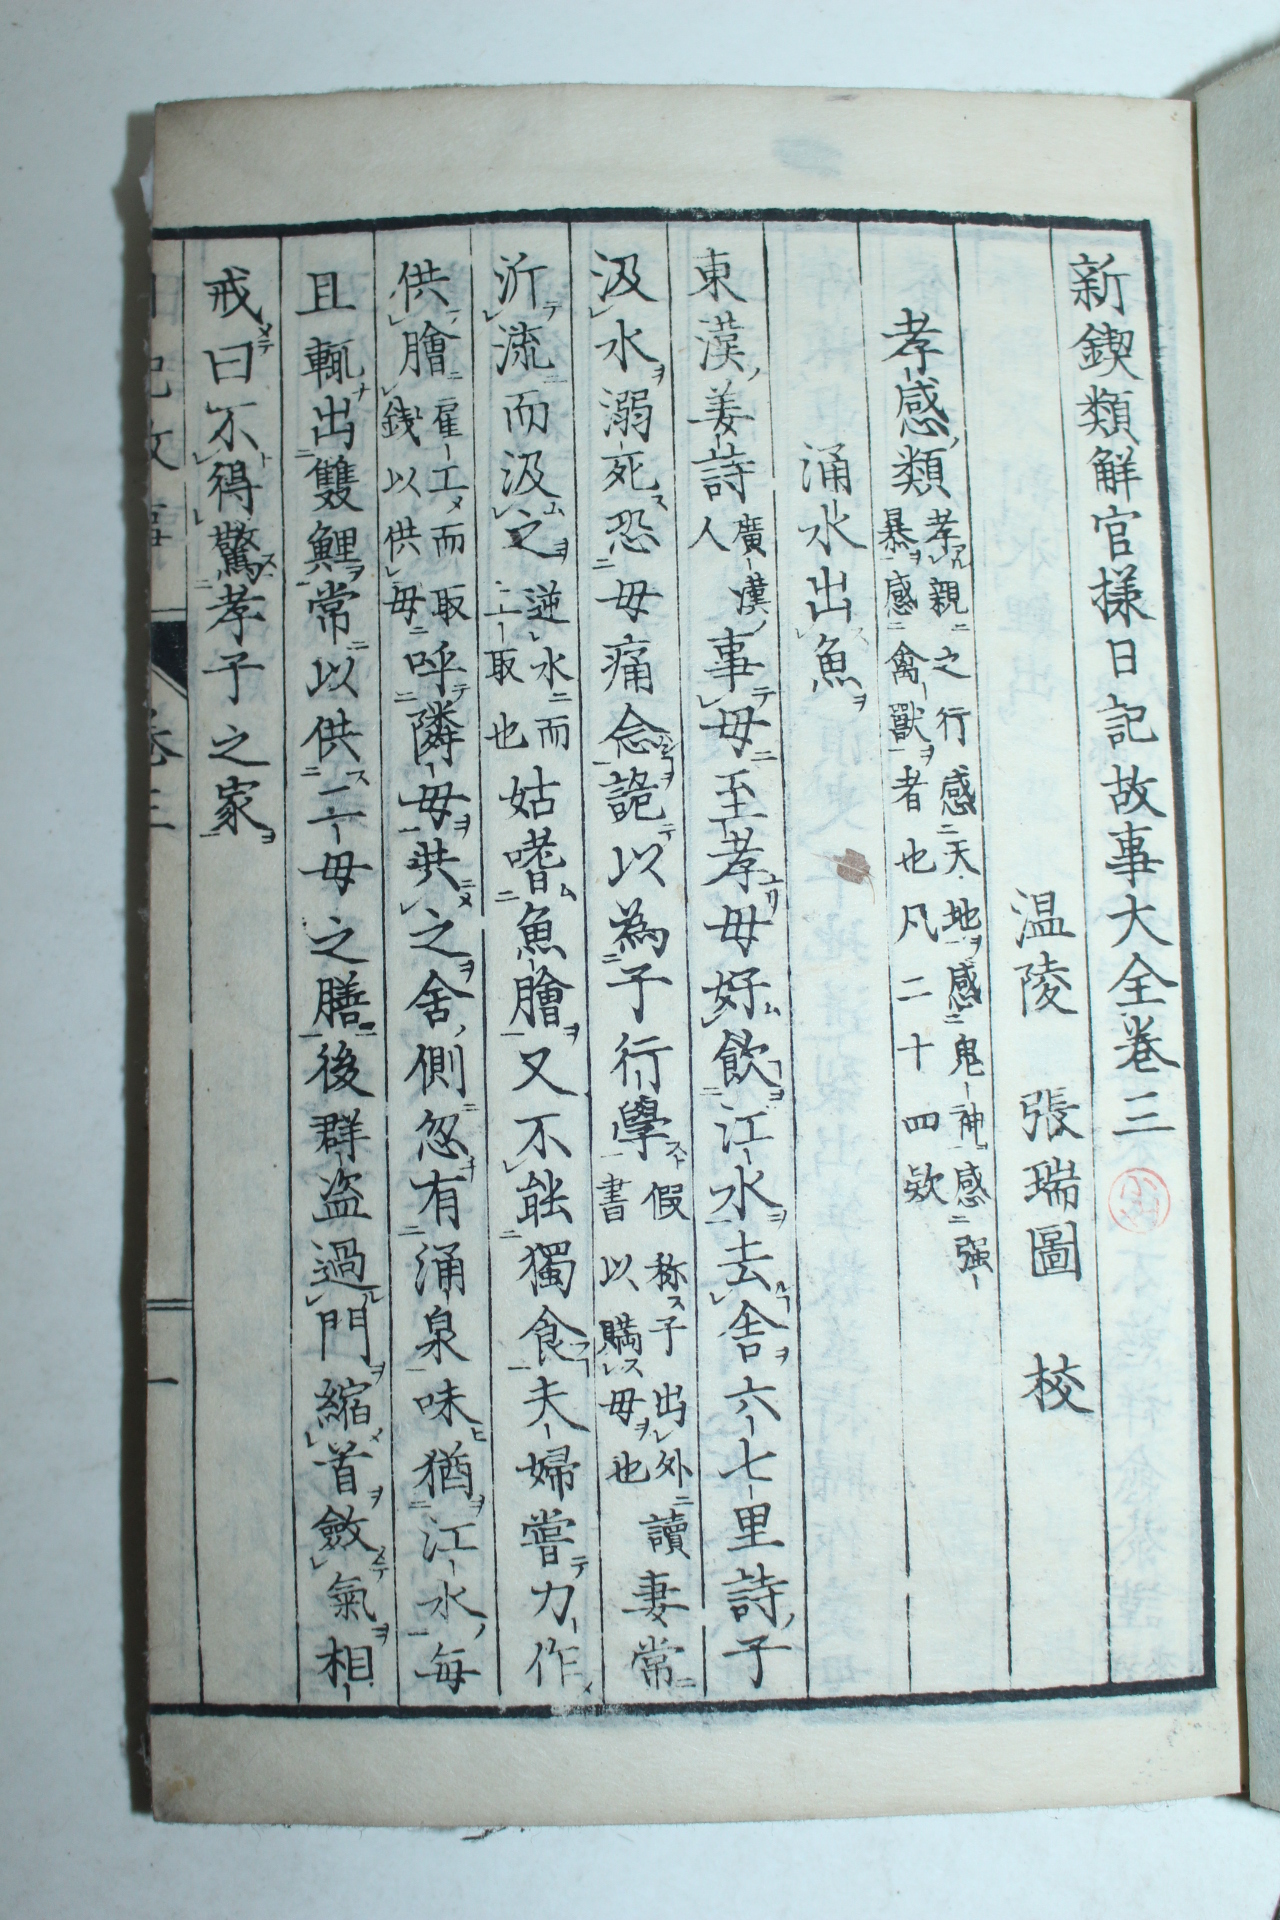 新鍥類觧官樣日記故事大全卷三
温陵　張瑞圖　校
孝感類　孝親之行感天地感鬼神感强
暴感禽獸者也凡二十四欵
涌水出魚
東漢姜詩　廣漢
人　事母至孝母好飲江水去舍六七里詩子
汲水溺死恐母痛念詭以為子行學　假称子出外
書以購母也　讀妻常
泝流而汲之　逆水而
上取也　姑嗜魚膾又不能獨食夫婦嘗力作
供膾　雇工而取
錢以供母　呼隣母共之舍側忽有涌泉味猶江水每
且輒出雙鯉常以供二母之膳後群盗過門縮首斂氣相
戒曰不得驚孝子之家
日記故事　卷三　一